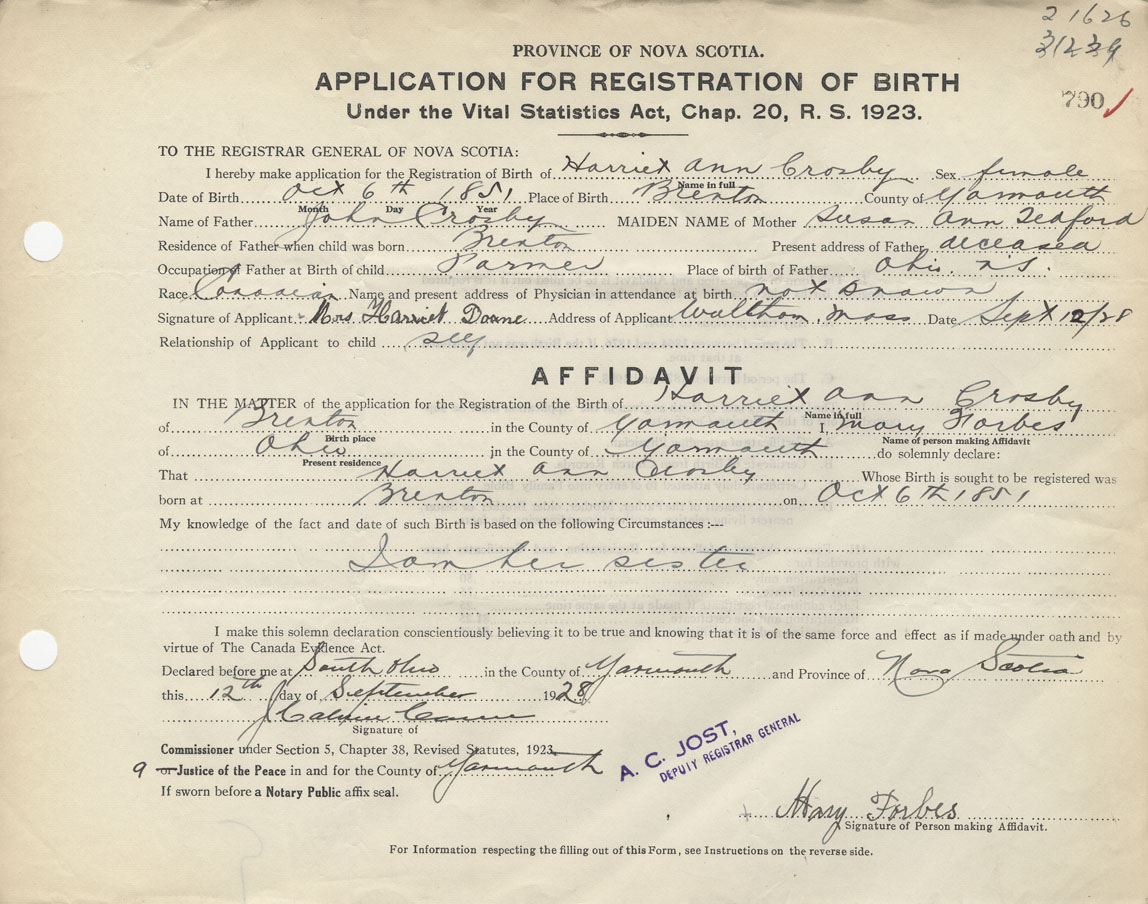 2 1626
31239
PROVINCE OF NOVA SCOTIA.
APPLICATION FOR REGISTRATION OF BIRTH
790
Under the Vital Statistics Act, Chap. 20, R. S. 1923.
TO THE REGISTRAR GENERAL OF NOVA SCOTIA:
I hereby make application for the Registration of Birth of Harriet Ann Crosby Sex female
Name in full
Date of Birth Oct 6th 1851 Place of Birth Brenton County of Yarmouth
Month Day Year
Name of Father John Crosby MAIDEN NAME of Mother Susan Ann Tedford
Residence of Father when child was born Brenton Present address of Father deceased
Occupation of Father at Birth of child Farmer Place of birth of Father Ohio N.S.
Race Canadian Name and present address of Physician in attendance at birth not known
Signature of Applicant Mrs Harriet Doane Address of Applicant Waltham, Mass Date Sept 12/28
Relationship of Applicant to child self
AFFIDAVIT
IN THE MATTER of the application for the Registration of the Birth of Harriet Ann Crosby
Name in full
of Brenton in the County of Yarmouth I, Mary Forbes
Birth place Name of person making Affidavit
of Ohio in the County of Yarmouth do solemnly declare:
Present residence
That Harriet Ann Crosby Whose Birth is sought to be registered was
born at Brenton on Oct 6th 1851
My knowledge of the fact and date of such Birth is based on the following Circumstances :---
I am her sister
I make this solemn declaration conscientiously believing it to be true and knowing that it is of the same force and effect as if made under oath and by
virtue of The Canada Evidence Act.
Declared before me at South Ohio in the County of Yarmouth and Province of Nova Scotia
this 12th day of September 1928
J Calvin
Signature of
Commissioner under Section 5, Chapter 38, Revised Statutes, 1923
or Justice of the Peace in and for the County of Yarmouth
If sworn before a Notary Public affix seal.
A. C. JOST,
DEPUTY REGISTRAR GENERAL
Mary Forbes
Signature of Person making Affidavit.
For Information respecting the filling out of this Form, see Instructions on the reverse side.